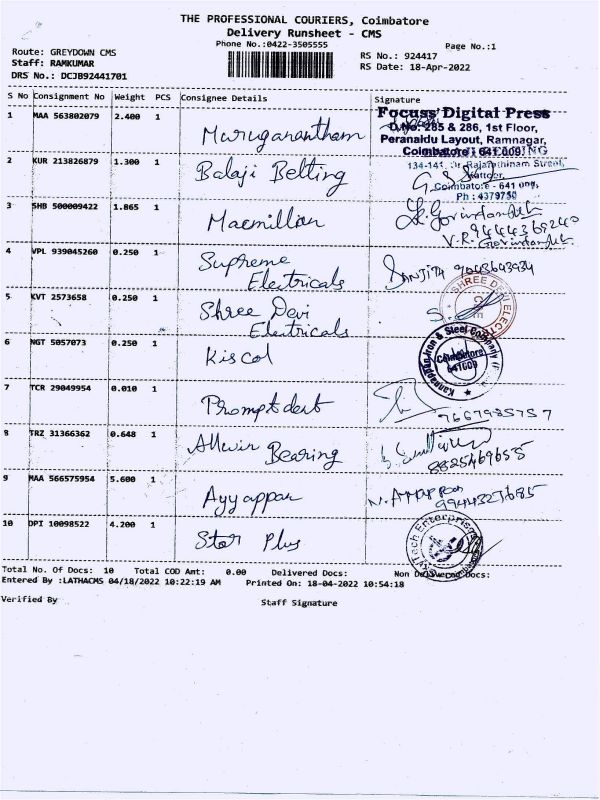 THE PROFESSIONAL COURIERS, Coimbatore
Delivery Runsheet - CMS
Phone No.:0422-3505555
Page No.:1
Route: GREYDOWN CMS
RS No.: 924417
Staff: RAMKUMAR
RS Date: 18-Apr-2022
DRS No.: DCJB92441701
S No Consignment No Weight PCS Consignee Details Signature
1 MAA 563802079 2.400 1 Murugarantham
Focuss Digital Press
D.No: 285 & 286, 1st Floor,
Peranaidu Layout, Ramnagar,
Coimbatore - 641 009.
2 KUR 213826879 1.300 1 Balaji Belting
Coimbatore - 641 009,
Ph : 4379750
3 SHB 500009422 1.865 1 Macmillan
V.R. 9444369240
4 VPL 939045260 0.250 1 Supreme
Electricals
SANJITA 9043643934
5 KVT 2573658 0.250 1 Shree Devi
Electricals
SHREE DEVI ELECT
6 NGT 5057073 0.250 1 Kiscol
Kannappan Iron & Steel Company
Coimbatore
641609
7 TCR 29049954 0.010 1 Promptdent
9667985757
8 TRZ 31366362 0.648 1 Allwin Bearing
8825469655
9 MAA 566575954 5.600 1 Ayyappan
9944327685
10 DPI 10098522 4.200 1 Star Plus
SkyTech Enterprises
Total No. Of Docs: 10 Total COD Amt: 0.00 Delivered Docs: Non Delivered Docs:
Entered By :LATHACMS 04/18/2022 10:22:19 AM Printed On: 18-04-2022 10:54:18
Verified By Staff Signature